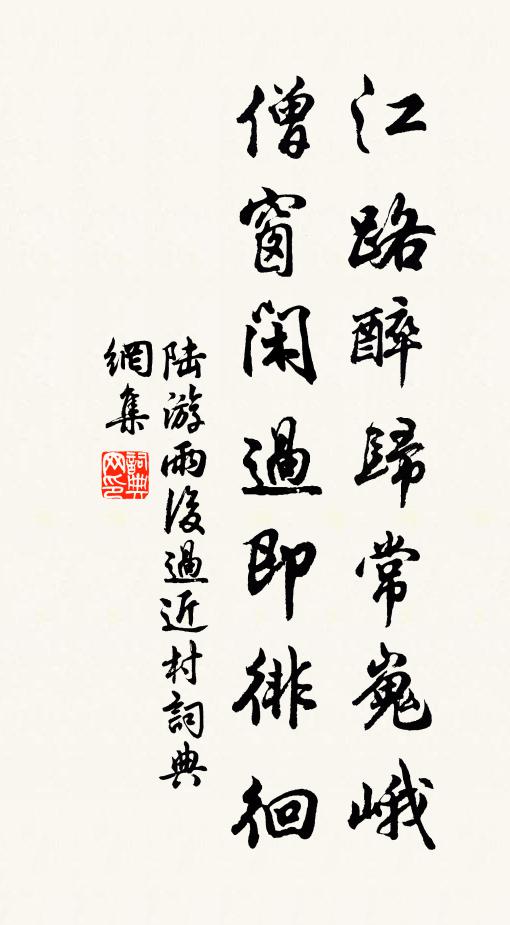 江路醉歸常嵬峨
僧窗閑過即徘徊
陸游雨後過近村詞典
網集
詞典網印